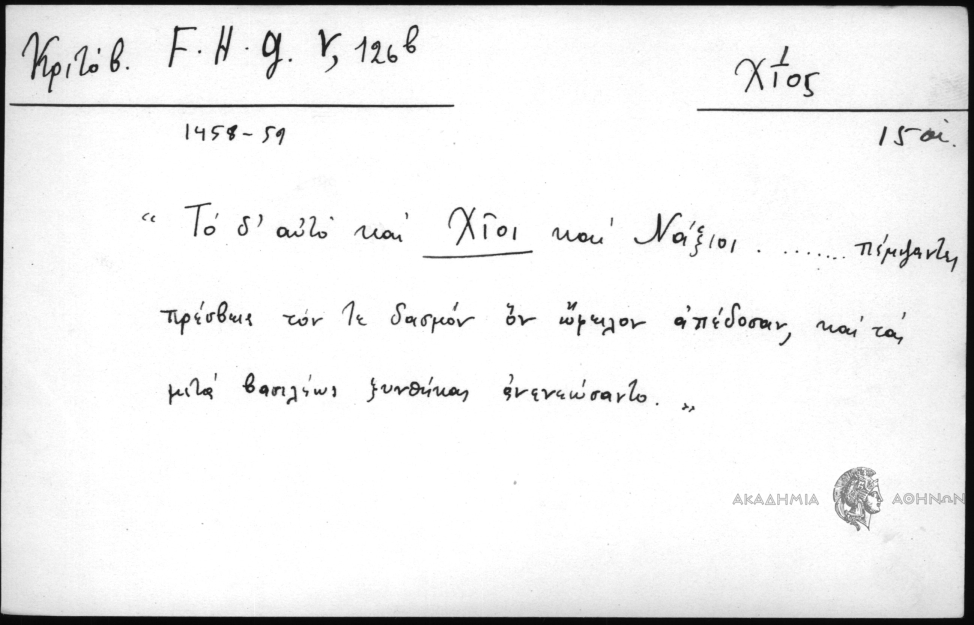 Κριτόβ. F. H. g. V, 126β
Χῖος
1458-59
15 αἰ.
“ Τό δ’ αὐτό καί Χῖοι καί Νάξιοι . ....... πέμψαντες
πρέσβεις τόν τε δασμόν ὅν ὤφειλον ἀπέδοσαν, καί τάς
μετά βασιλέως ξυνθήκας ἀνενεώσαντο. „
ΑΚΑΔΗΜΙΑ ΑΘΗΝΩΝ